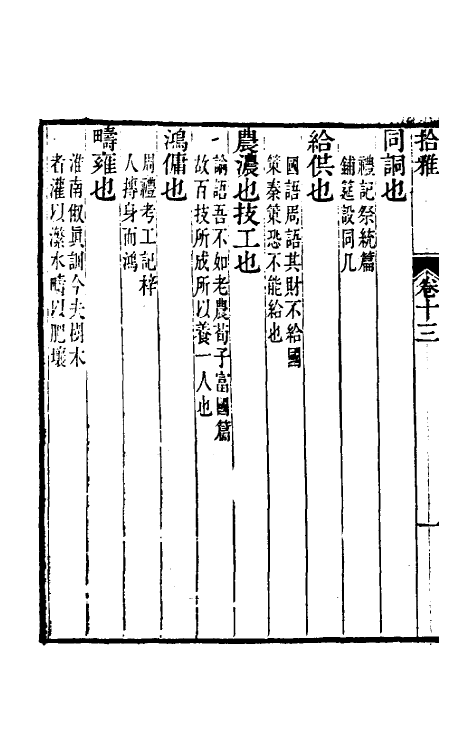 拾雅
卷十三
一
同詷也
禮記祭統篇
鋪筵設同几
給供也
國語周語其財不給國
策秦策恐不能給也
農濃也技工也
論語吾不如老農荀子富國篇
故百技所成所以養一人也
鴻傭也
周禮考工記梓
人摶身而鴻
疇雍也
淮南俶眞訓今夫樹木
者灌以瀿水疇以肥壤